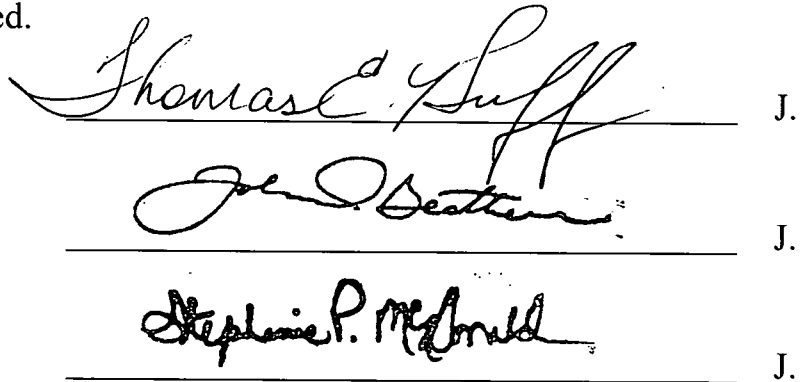 ed.
Thomas E. Huff J.
John D. Geathers J.
Stephanie P. McDonald J.